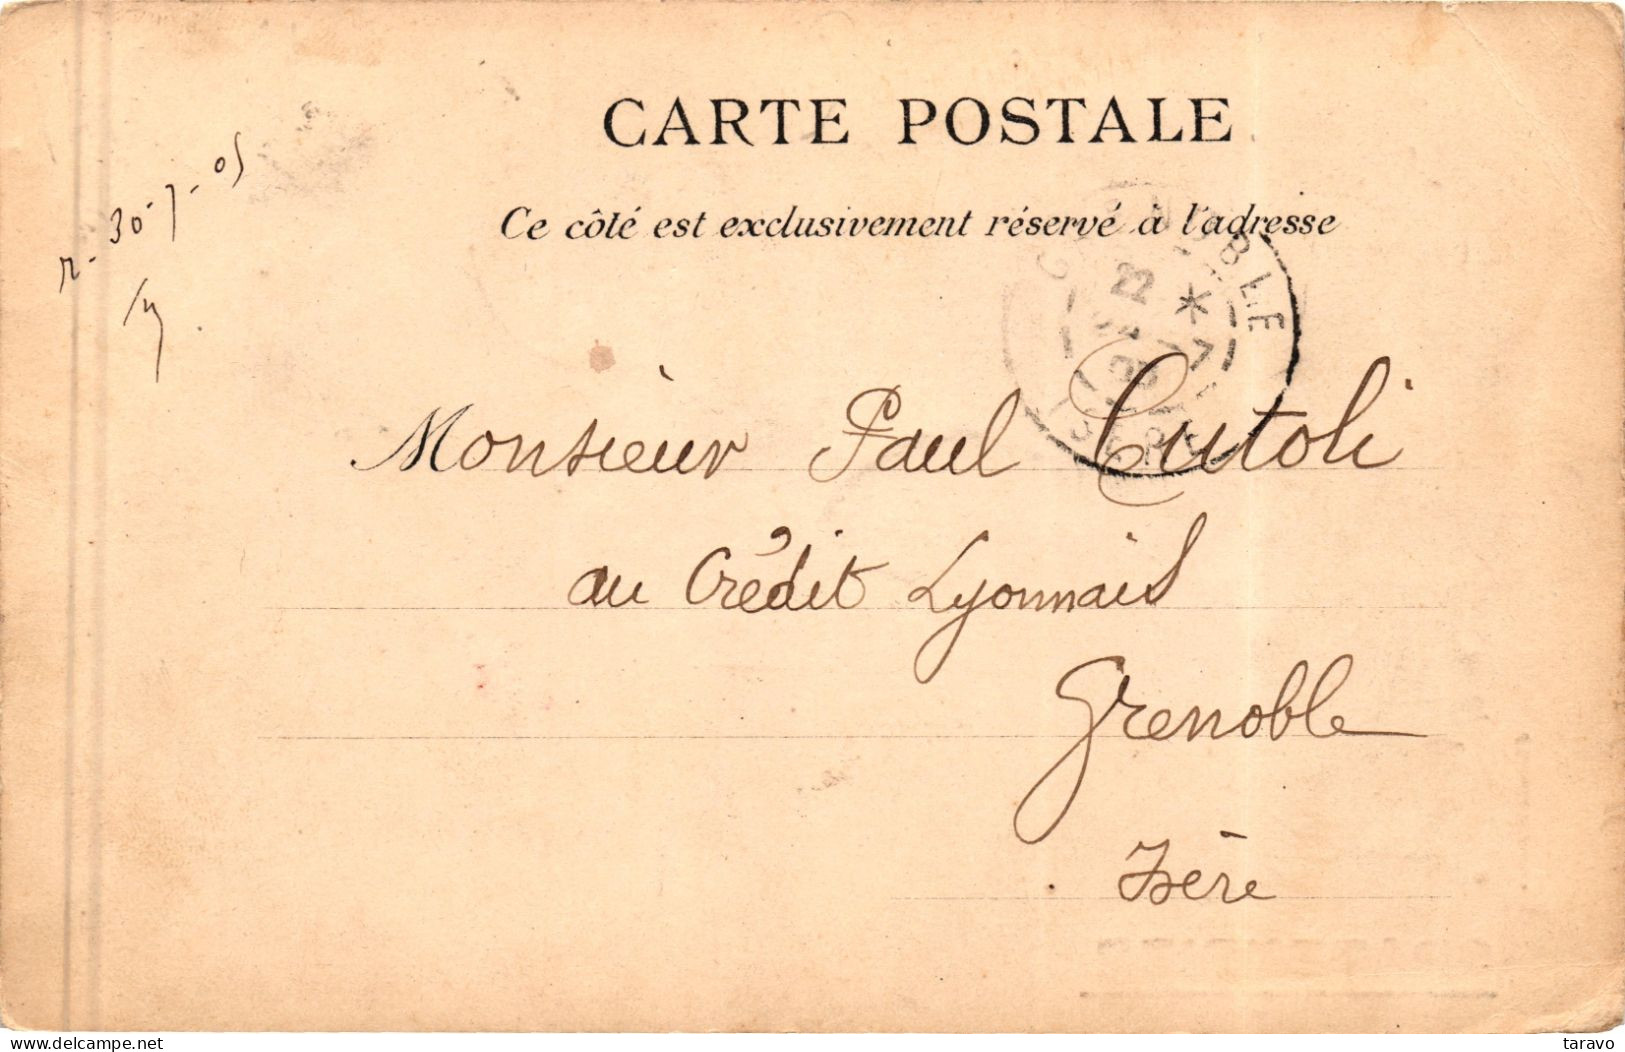 CARTE POSTALE
Ce côté est exclusivement réservé à l'adresse
30-7-05
22
Monsieur Paul Cutoli
au Crédit Lyonnais
Grenoble
Isère
www.delcampe.net
taravo